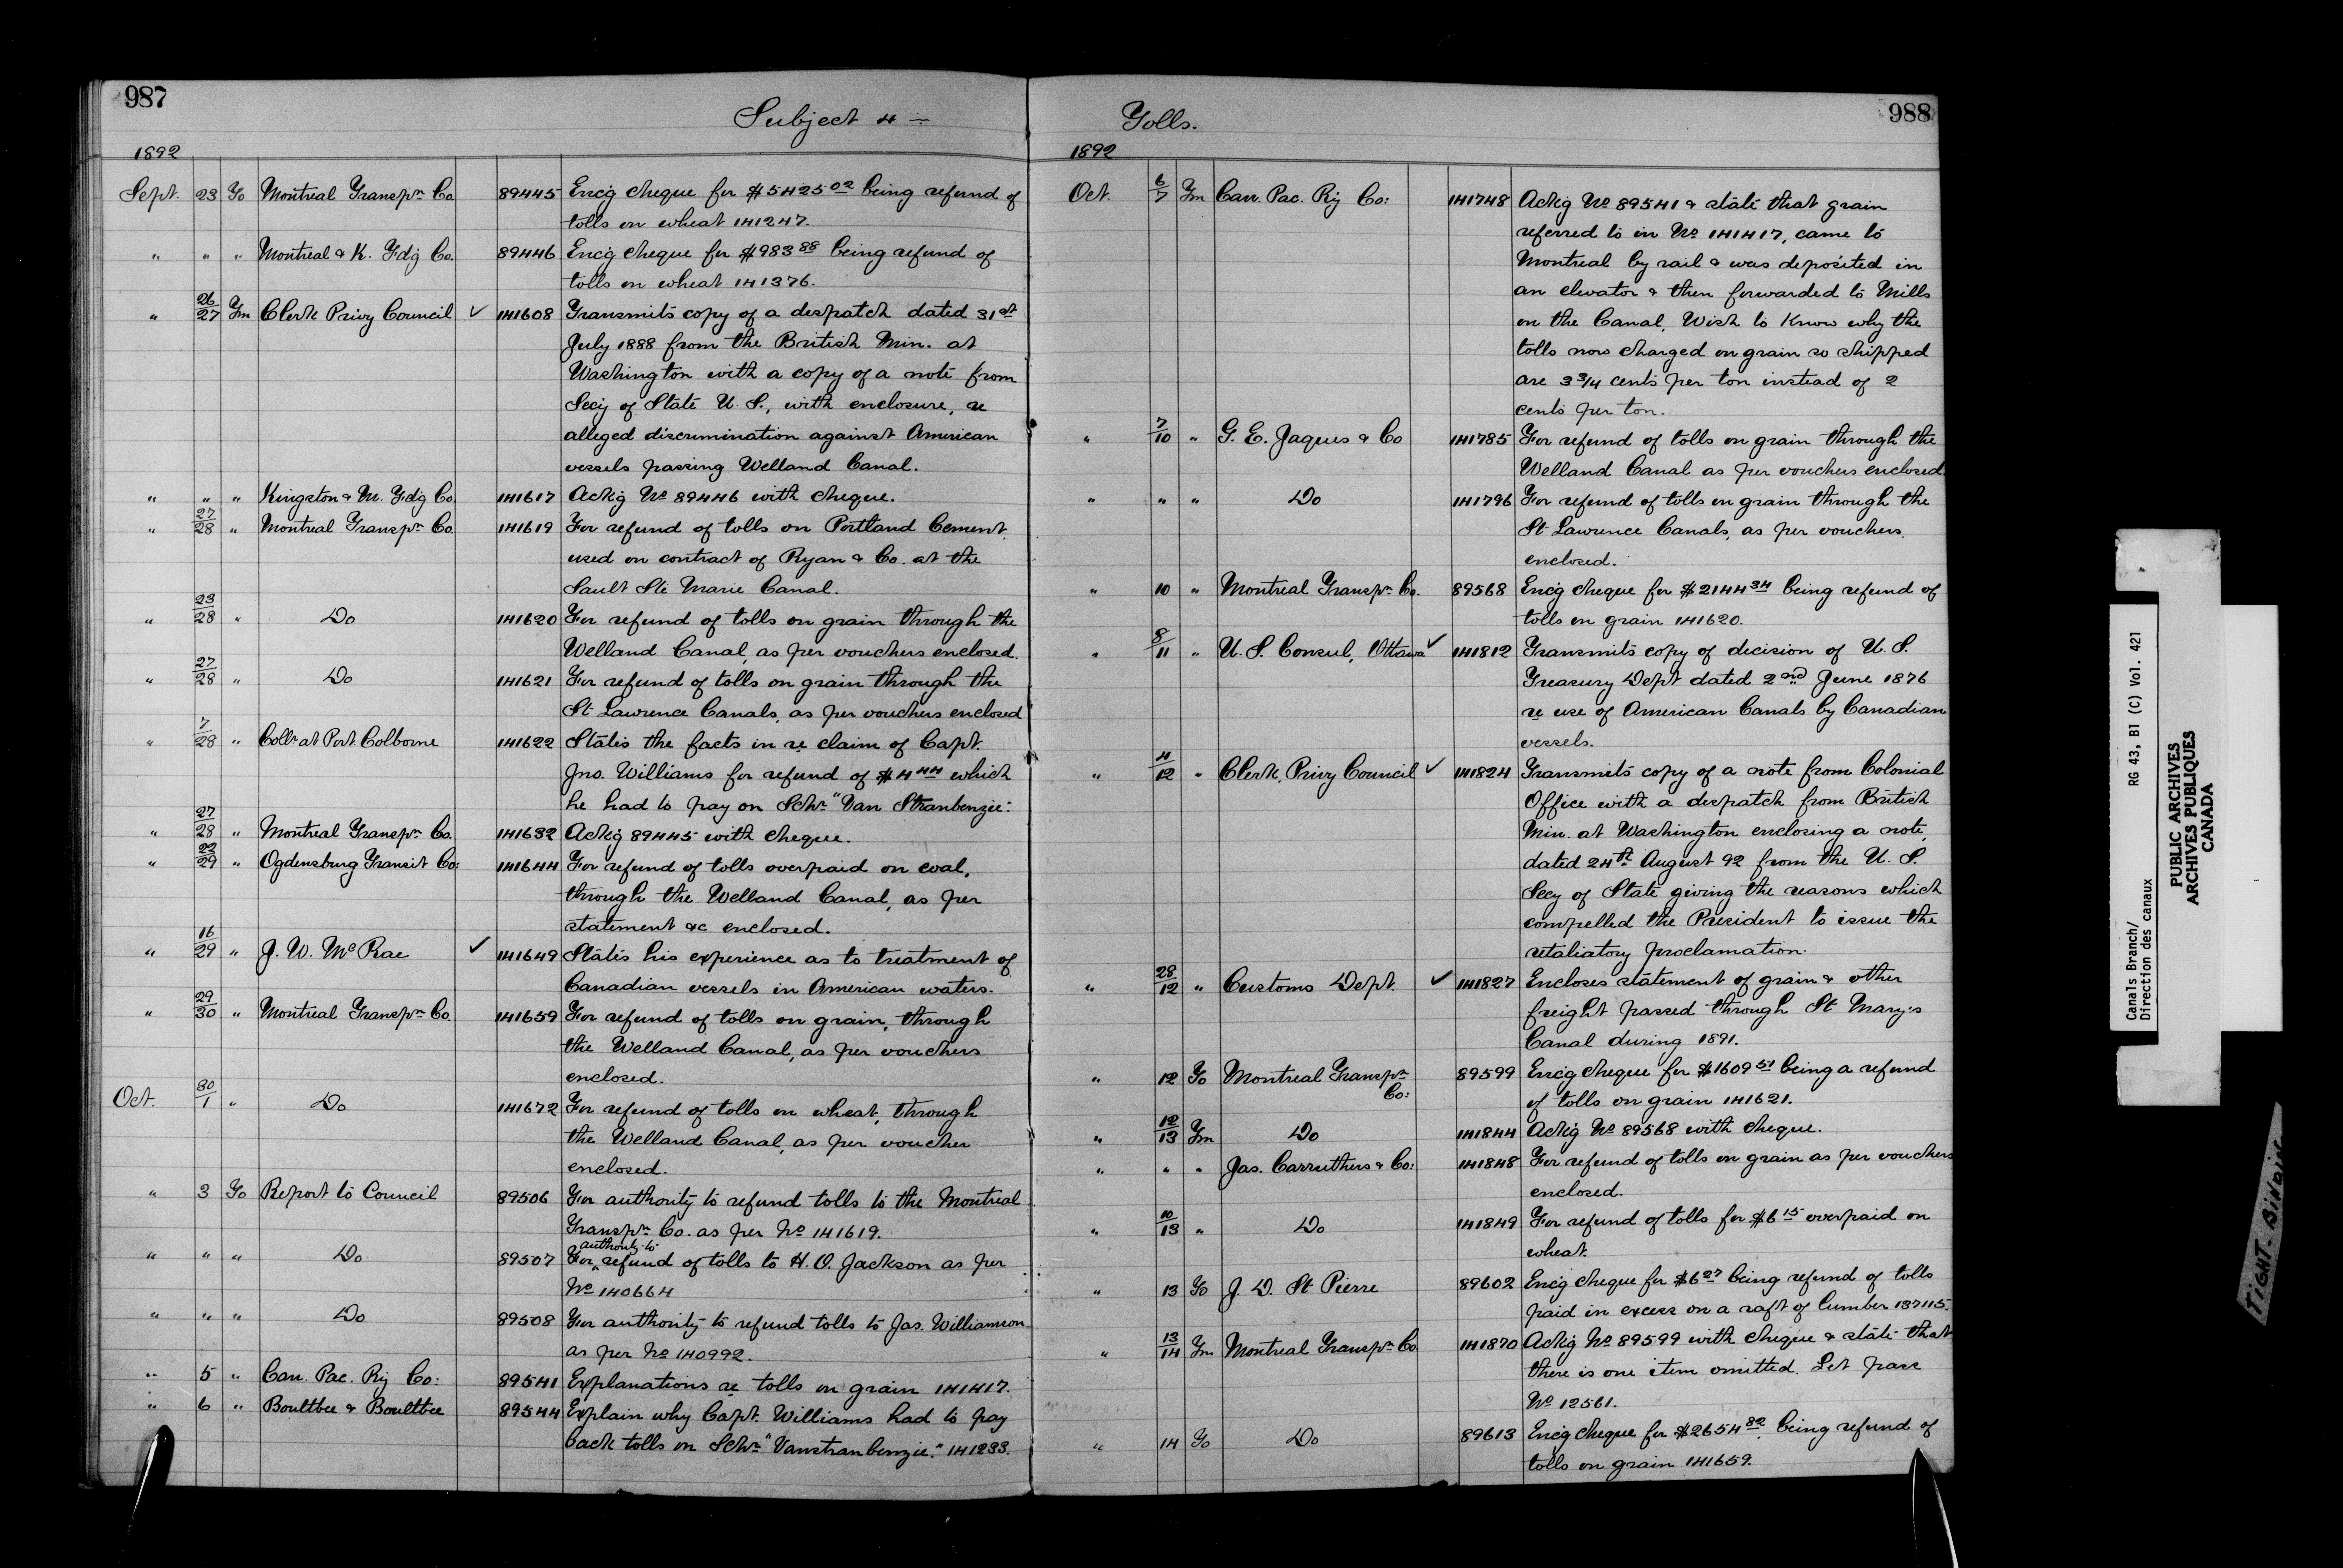 987
Subject 4 ÷
1892
Sept. 23 To Montreal Transpn Co. 89445 Encg cheque for $5425.02 being refund of
tolls on wheat 141247.
" " " Montreal & K. Fdg Co. 89446 Encg cheque for $983.88 being refund of
tolls on wheat 141376.
" 26/27 Fm Clerk Privy Council ✓ 141608 Transmits copy of a despatch dated 31st
July 1888 from the British Min. at
Washington with a copy of a note from
Secy of State U.S., with enclosure, re
alleged discrimination against American
vessels passing Welland Canal.
" " " Kingston & M. Fdg Co. 141617 Ackg No 89446 with cheque.
" 27/28 " Montreal Transpn Co. 141619 For refund of tolls on Portland Cement
used on contract of Ryan & Co. at the
Sault Ste Marie Canal.
" 23/28 " Do 141620 For refund of tolls on grain through the
Welland Canal, as per vouchers enclosed.
" 27/28 " Do 141621 For refund of tolls on grain through the
St Lawrence Canals, as per vouchers enclosed
" 7/28 " Collr at Port Colborne 141622 States the facts in re claim of Capt.
Jno. Williams for refund of $4.44 which
he had to pay on Schr "Van Stranbenzie:
" 27/28 " Montreal Transpn Co. 141632 Ackg 89445 with cheque.
" 22/29 " Ogdensburg Transit Co: 141644 For refund of tolls overpaid on coal,
through the Welland Canal, as per
statement &c enclosed.
" 16/29 " J. W. McRae ✓ 141649 States his experience as to treatment of
Canadian vessels in American waters.
" 29/30 " Montreal Transpn Co. 141659 For refund of tolls on grain, through
the Welland Canal, as per vouchers
enclosed.
Oct. 30/1 " Do 141672 For refund of tolls on wheat, through
the Welland Canal, as per voucher
enclosed.
" 3 To Report to Council 89506 For authority to refund tolls to the Montreal
Transpn Co. as per No 141619.
" " " Do 89507 For authority to refund of tolls to H. O. Jackson as per
No 140664
" " " Do 89508 For authority to refund tolls to Jas. Williamson
as per No 140992.
" 5 " Can. Pac. Ry Co: 89541 Explanations re tolls on grain 141417.
" 6 " Boultbee & Boultbee 89544 Explain why Capt. Williams had to pay
back tolls on Schr "Vanstranbenzie." 141233.
988
Tolls.
1892
Oct. 6/7 Fm Can. Pac. Ry Co: 141748 Ackg No 89541 & state that grain
referred to in No 141417, came to
Montreal by rail & was deposited in
an elevator & then forwarded to Mills
on the Canal, Wish to know why the
tolls now charged on grain so shipped
are 3 3/4 cents per ton instead of 2
cents per ton.
" 7/10 " G. E. Jaques & Co 141785 For refund of tolls on grain through the
Welland Canal as per vouchers enclosed.
" " " Do 141796 For refund of tolls on grain through the
St Lawrence Canals, as per vouchers
enclosed.
" 10 " Montreal Transpn Co. 89568 Encg cheque for $2144.34 being refund of
tolls on grain 141620.
" 8/11 " U. S. Consul, Ottawa ✓ 141812 Transmits copy of decision of U. S.
Treasury Dept dated 2nd June 1876
re use of American Canals by Canadian
vessels.
" 11/12 " Clerk, Privy Council ✓ 141824 Transmits copy of a note from Colonial
Office with a despatch from British
Min. at Washington enclosing a note,
dated 24th August 92 from the U. S.
Secy of State giving the reasons which
compelled the President to issue the
retaliatory proclamation.
" 28/12 " Customs Dept. ✓ 141827 Encloses statement of grain & other
freight passed through St Mary's
Canal during 1891.
" 12 To Montreal Transpn
Co: 89599 Encg cheque for $1609.51 being a refund
of tolls on grain 141621.
" 12/13 Fm Do 141844 Ackg No 89568 with cheque.
" " " Jas. Carruthers & Co: 141848 For refund of tolls on grain as per vouchers
enclosed.
" 10/13 " Do 141849 For refund of tolls for $6.15 overpaid on
wheat.
" 13 To J. D. St Pierre 89602 Encg cheque for $6.27 being refund of tolls
paid in excess on a raft of lumber 137115.
" 13/14 Fm Montreal Transpn Co. 141870 Ackg No 89599 with cheque & state that
there is one item omitted. Let pass
No 12561.
" 14 To Do 89613 Encg cheque for $2654.82 being refund of
tolls on grain 141659.
Canals Branch/ RG 43, B1 (C) Vol. 421
Direction des canaux
PUBLIC ARCHIVES
ARCHIVES PUBLIQUES
CANADA
TIGHT BINDING